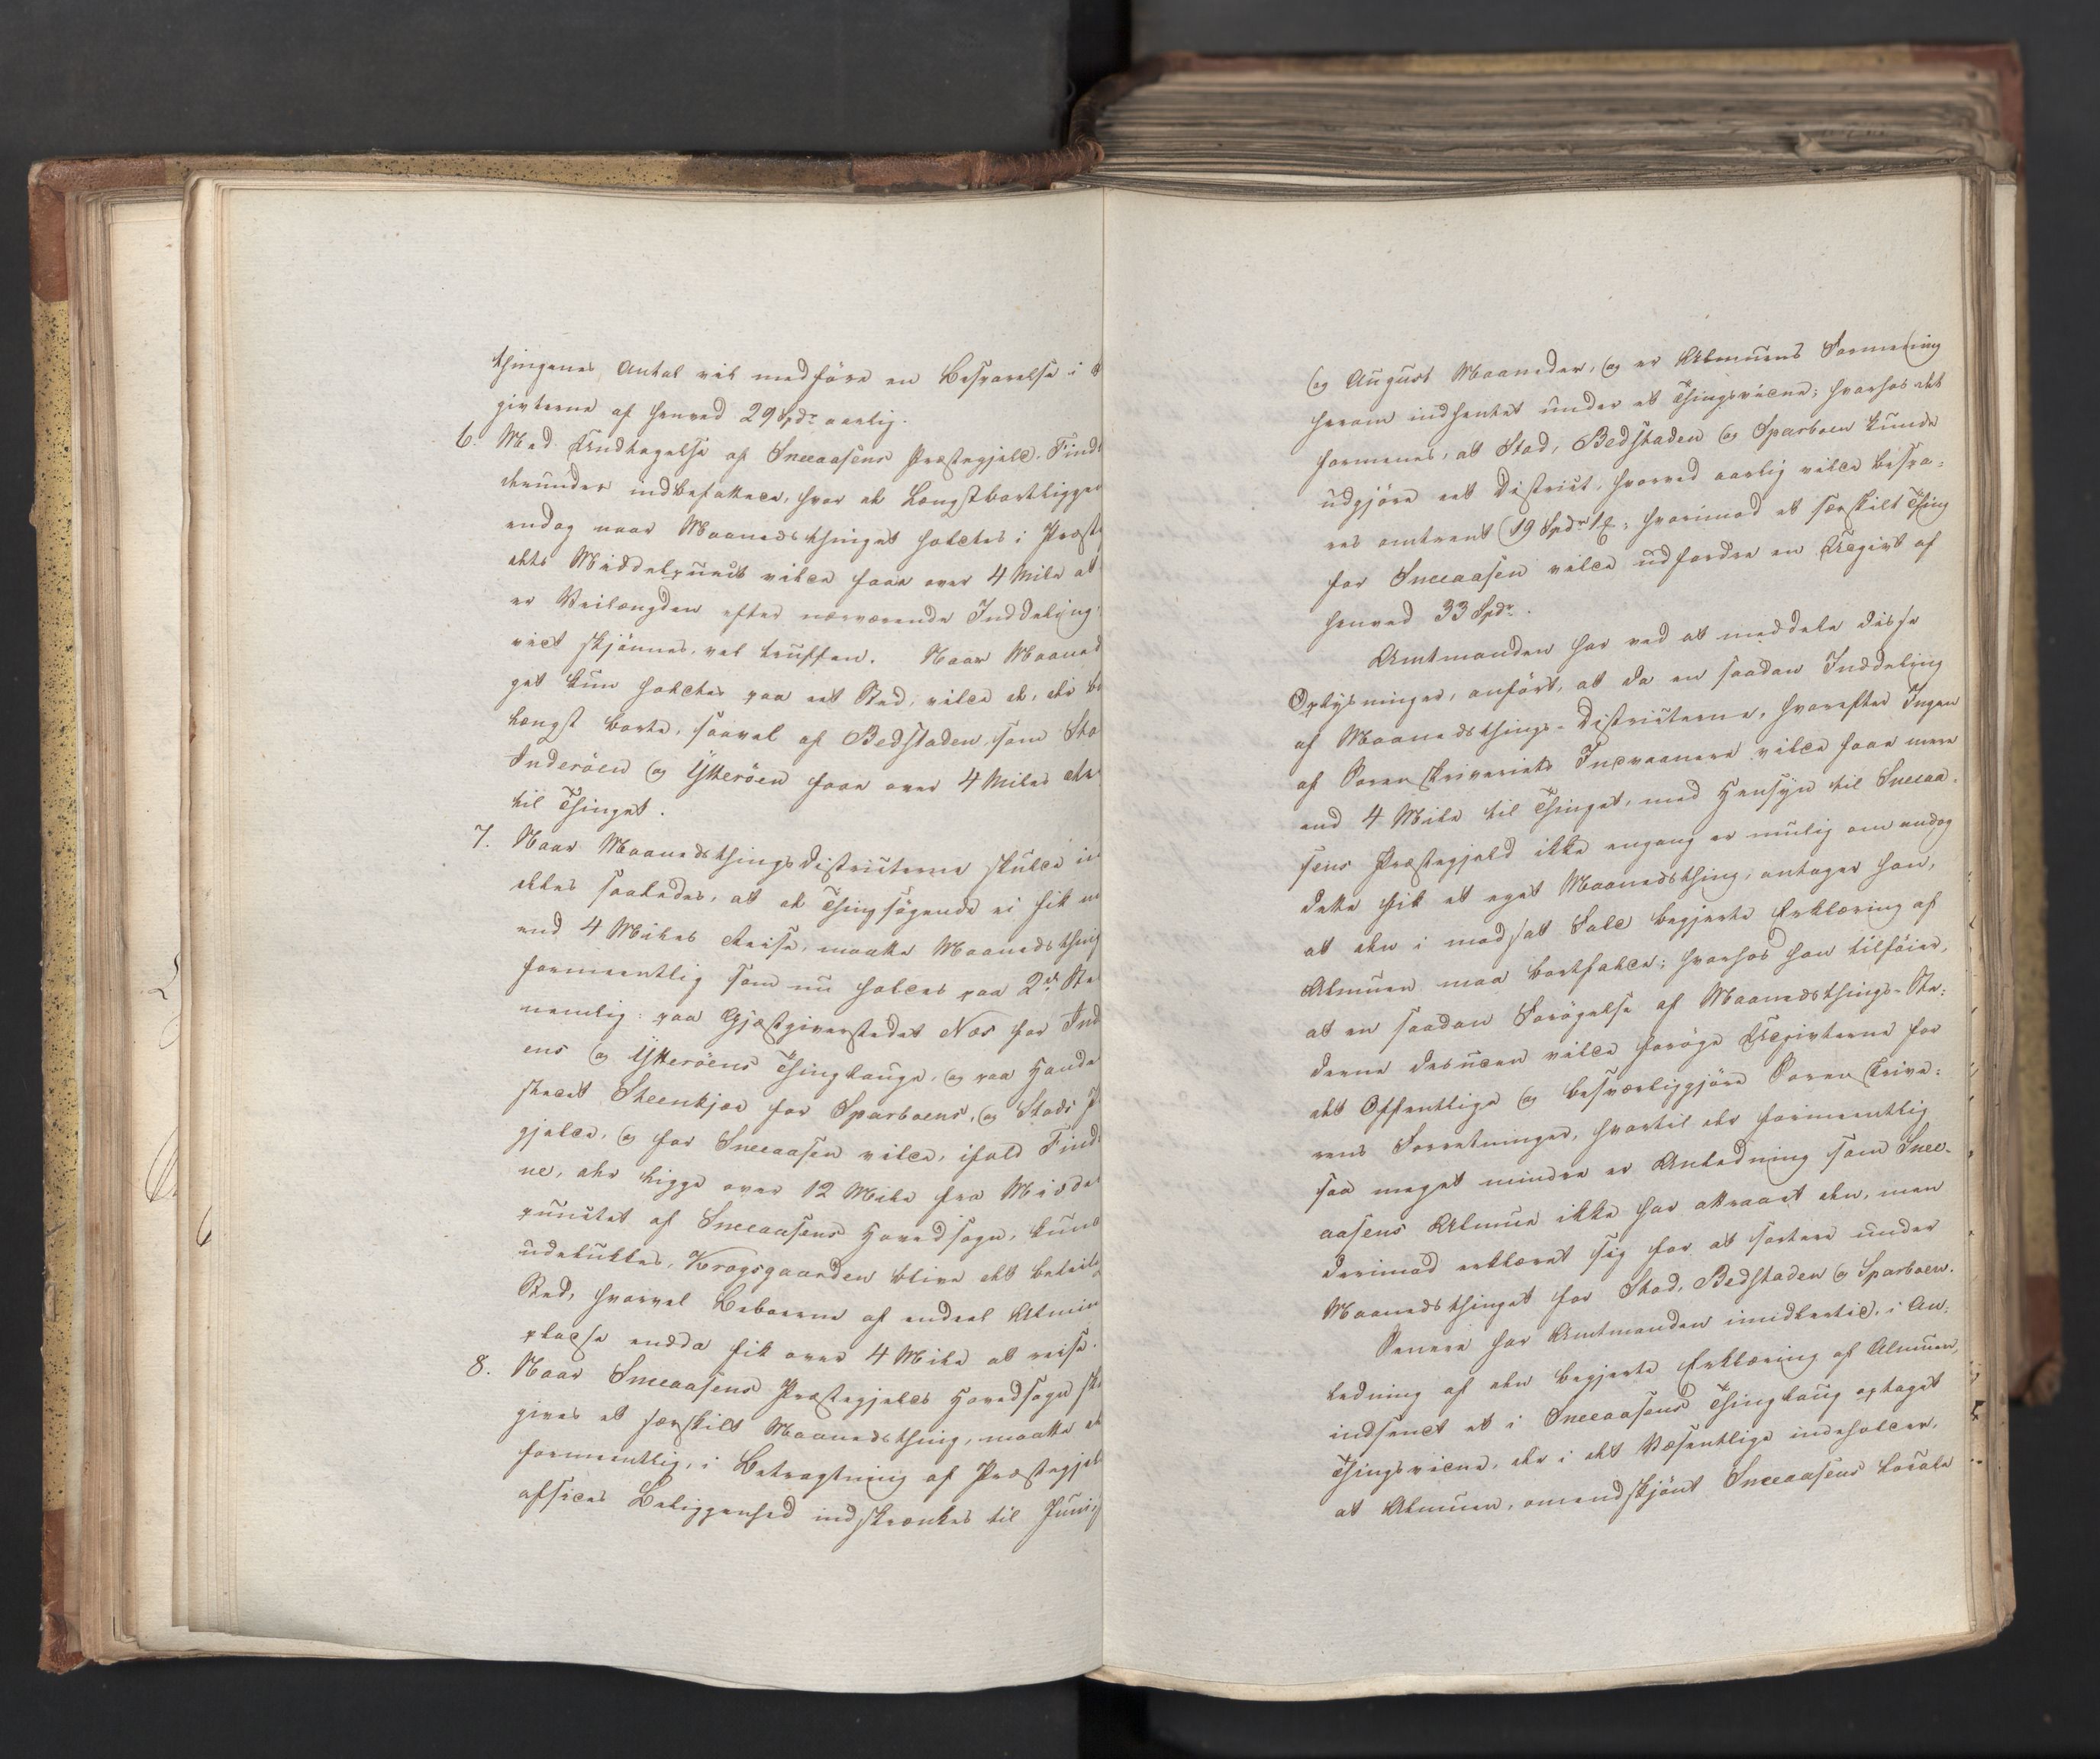 thingenes Antal vil medføre en Besparelse i
givterne af henved 29 Spdr aarlig.
6. Med Undtagelse af Sneeaasens Præstegjeld, Find
derunder indbefattede, hvor de Længstbortligge
endog naar Maanedsthinget holdtes i Præst
dets Middelpunct vilde faae over 4 Mile at
er Veilængden efter nærværende Inddeling,
vidt skjönnes, vel truffen. Naar Maaned
get kun holdtes paa eet Sted, vilde de, der bo
længst borte, saavel af Bedstaden, som Sto
Inderöen og Ytteröen faae over 4 Miles
til Thinget.
7. Naar Maanedsthingsdistricterne skulde in
deles saaledes, at de Thingsögende ei fik m
end 4 Miles Reise, maatte Maanedsthing
formeentlig som nu holdes paa 2de Ste
nemlig: paa Gjæstgiverstedet Næs for Ind
ens og Ytteröens Thinglauge, og paa Hande
stedet Steenkjær for Sparboens, og Stods P
gjelde, og for Sneeaasen vilde, ifald Find
ne, der ligge over 12 Mile fra Midde
punctet af Sneeaasens Hovedsogn, kund
udelukkes, Krogsgaarden blive det beleil
Sted, hvorvel Beboerne af endeel Almin
pladse endda fik over 4 Mile at reise.
8. Naar Sneeaasens Præstegjelds Hovedsogn sk
gives et særskilt Maanedsthing, maatte de
formeentlig, i Betragtning af Præstegjel
afsides Beliggenhed indskrænkes til Junii
og August Maaneder, og er Almuens Formening
herom indhentet under et Thingsvidne; hvorhos det
formenes, at Stod, Bedstaden og Sparboen kunde
udgjöre eet District, hvorved aarlig vilde bespa-
res omtrent (19 Spdr 1; hvorimod et særskilt Thing
for Sneeaasen vilde udfordre en Udgivt af
henved 33 Spdr.
Amtmanden har ved at meddele disse
Oplysninger, anført, at da en saadan Inddeling
af Maanedsthings-Districterne, hvorefter Ingen
af Sorenskriveriets Indvaanere vilde faae mere
end 4 Mile til Thinget, med Hensyn til Sneeaa-
sens Præstegjeld ikke engang er mulig om endog
dette fik et eget Maanedsthing, antager han,
at den i modsat Fald begjerte Erklæring af
Almuen maa bortfalde; hvorhos han tilföier,
at en saadan Forögelse af Maanedsthings-Ste-
derne desuden vilde foröge Udgivterne for
det Offentlige og besværliggjöre Sorenskrive-
rens Forretninger, hvortil der formeentlig
saa meget mindre er Anledning som Snee-
aasens Almue ikke har attraaet den, men
derimod erklæret sig for at sortere under
Maanedsthinget for Stod, Bedstaden og Sparboen.
Senere har Amtmanden imidlertid, i An-
ledning af den begjerte Erklæring af Almuen,
indsendt et i Sneeaasens Thinglaug optaget
Thingsvidne, der i det Væsentlige indeholder,
at Almuen, omendskjönt Sneeaasens locale